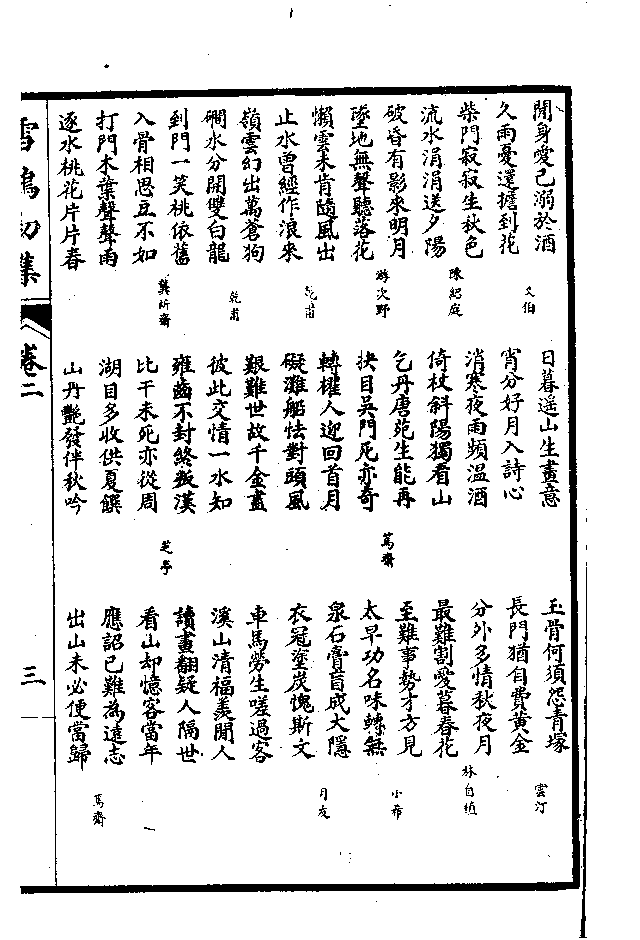 閒身愛已溺於酒
久雨憂還擔到花
又伯
柴門寂寂生秋色
流水涓涓送夕陽
陳紹庭
破昏有影來明月
墜地無聲聽落花
游次野
懶雲未肯隨風出
止水曾經作浪來
乾甫
嶺雲幻出萬蒼狗
磵水分開雙白龍
乾甫
到門一笑桃依舊
入骨相思豆不如
龔昕齋
打門木葉聲聲雨
逐水桃花片片春
日暮遙山生畫意
宵分好月入詩心
消寒夜雨頻溫酒
倚杖斜陽獨看山
乞丹唐苑生能再
抉目吳門死亦奇
篤齋
轉櫂人迎回首月
礙灘船怯對頭風
艱難世故千金盡
彼此交情一水知
雍齒不封終叛漢
比干未死亦從周
芝亭
湖目多收供夏饌
山丹艷發伴秋吟
玉骨何須怨青塚
長門猶自費黃金
雲汀
分外多情秋夜月
最難割愛暮春花
林自植
至難事勢才方見
太早功名味轉無
小希
泉石膏肓成大隱
衣冠塗炭愧斯文
月友
車馬勞生嗟過客
溪山清福羨閒人
讀畫翻疑人隔世
看山却憶客當年
應詔已難為遠志
出山未必便當歸
篤齋
雪鴻初集
卷二
三